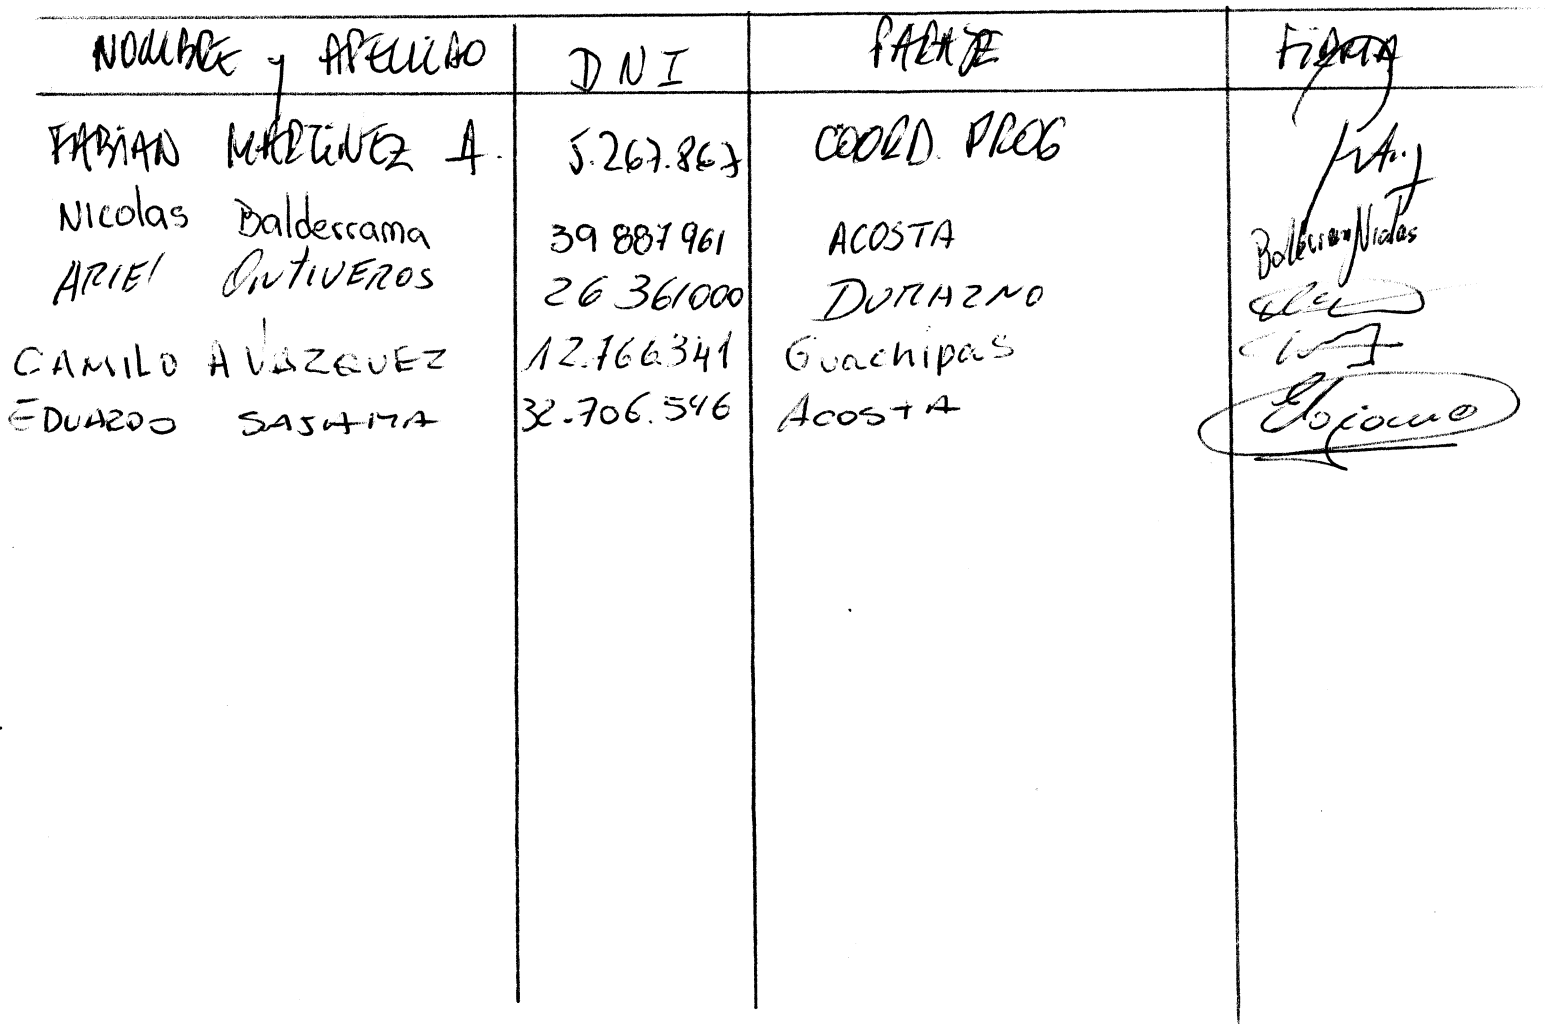 NOMBRE y APELLIDO DNI PARAJE FIRMA
FABIAN MARTINEZ A. 5.267.867 COORD. PROG
Nicolas Balderrama 39 887 961 ACOSTA Balderrama Nicolas
ARIEl ONTIVEROS 26 361000 DURAZNO
CAMILO A VAZQUEZ 12.766.341 Guachipas
EDUARDO SAJAMA 32.706.546 ACOSTA